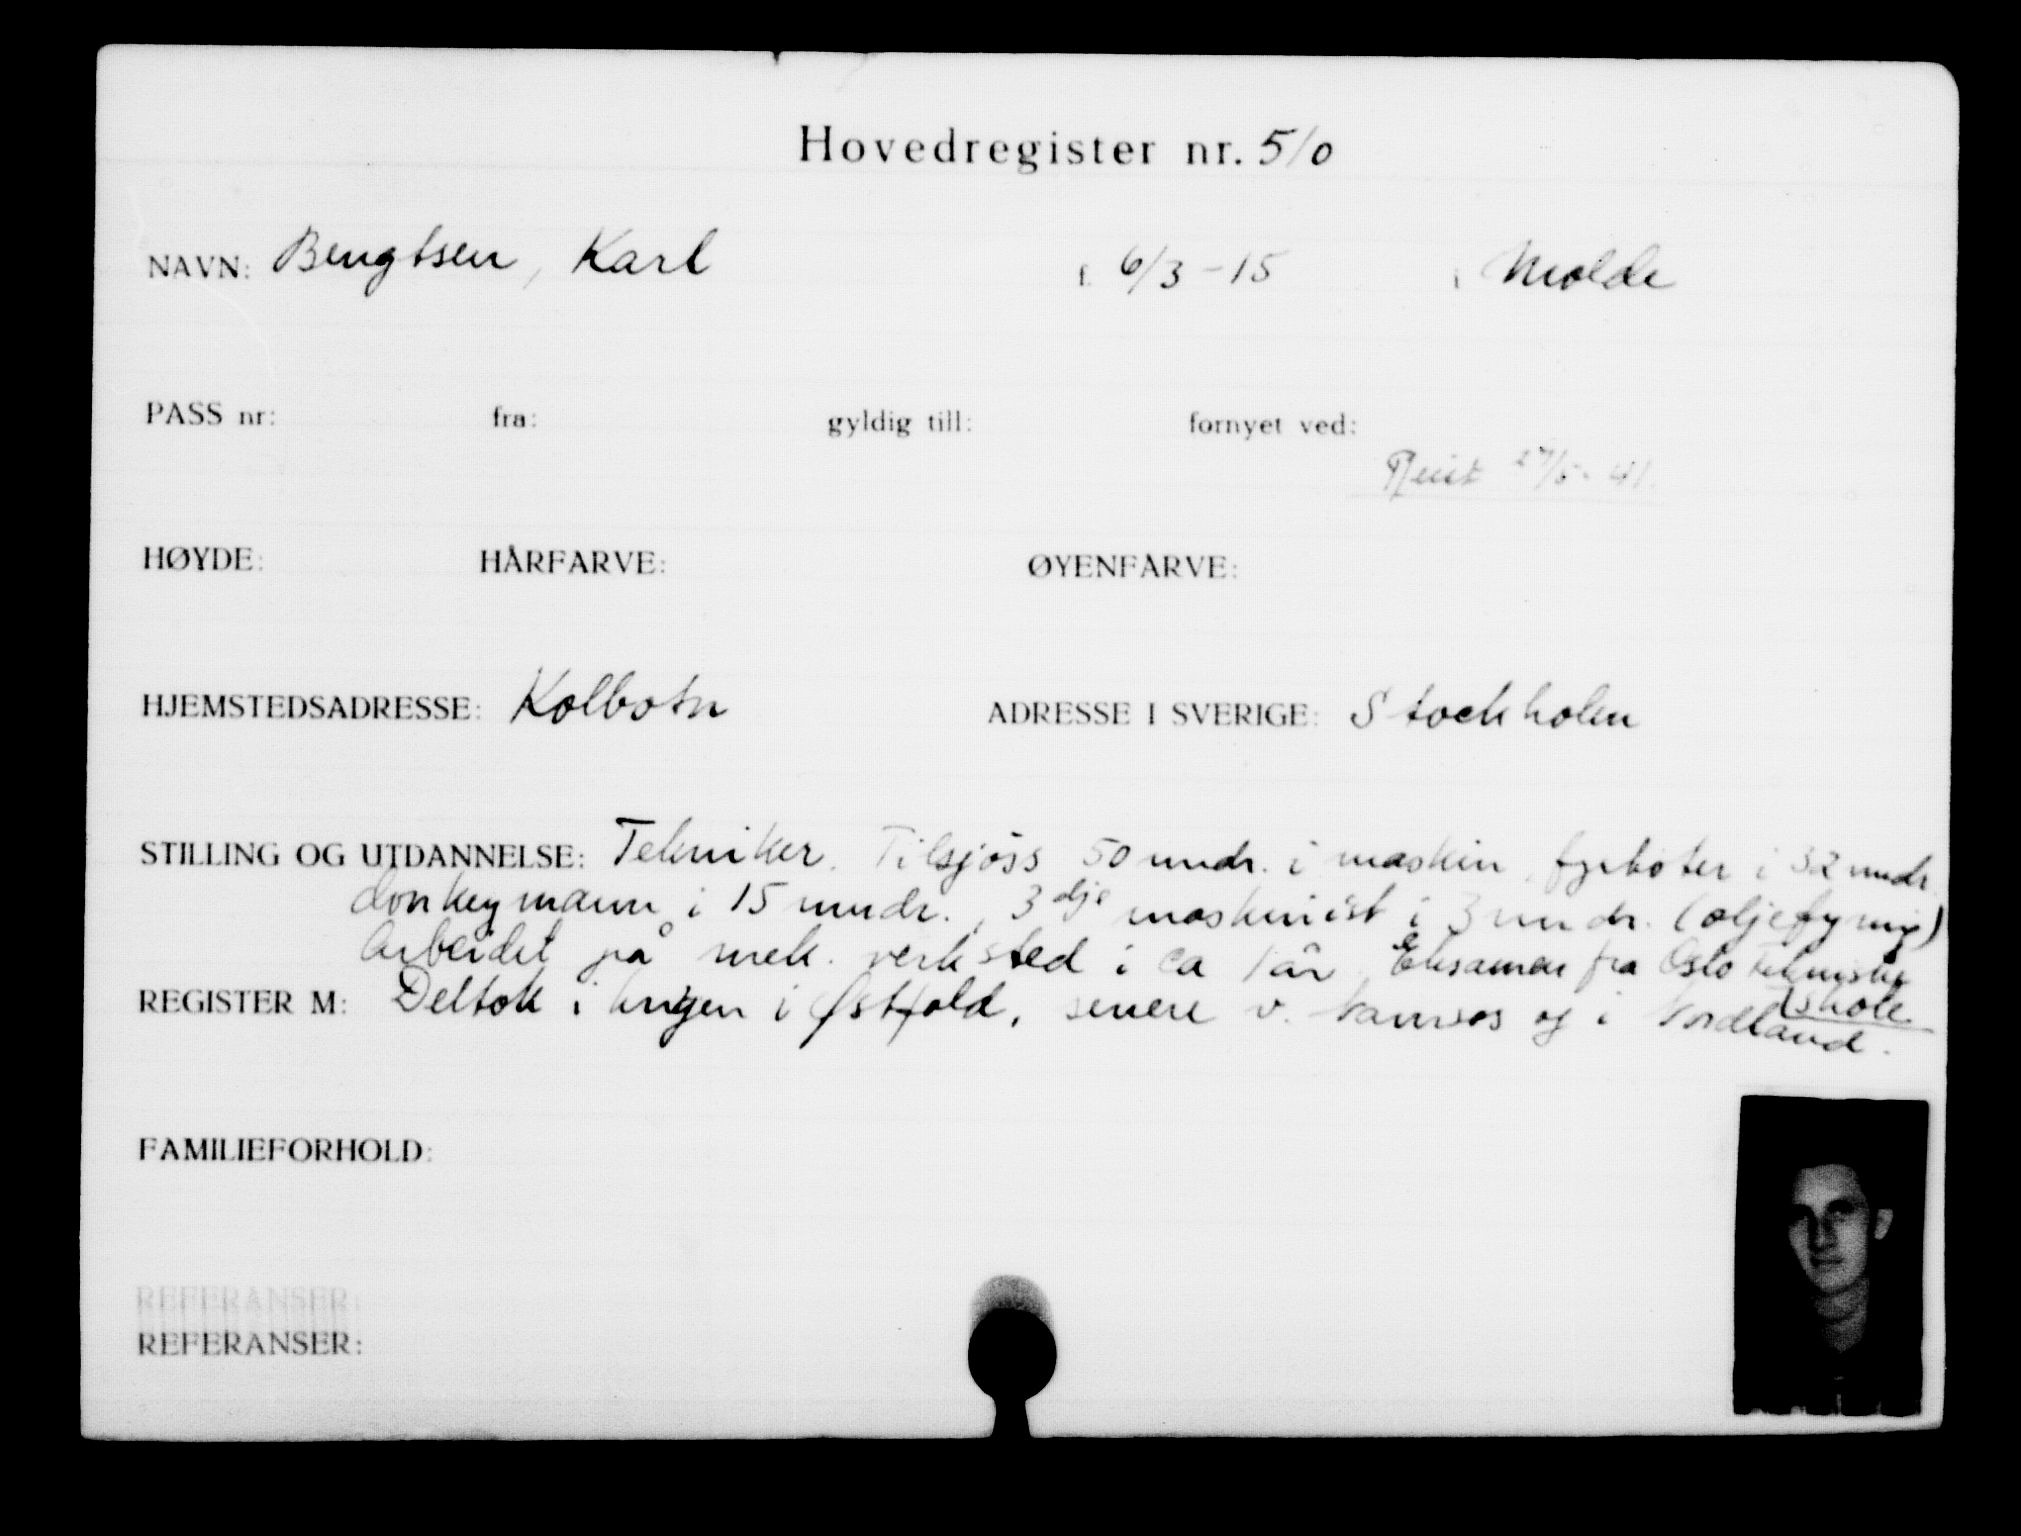 Hovedregister nr. 510
NAVN: Bengtsen, Karl f. 6/3-15 i Molde
PASS nr: fra: gyldig till: fornyet ved:
Reist 27/5-41.
HØYDE: HÅRFARVE: ØYENFARVE:
HJEMSTEDSADRESSE: Kolbotn ADRESSE I SVERIGE: Stockholm
STILLING OG UTDANNELSE: Tekniker. Tilsjøss 50 mndr. i maskin, fyrbøter i 32 mndr.
donkeymann i 15 mndr., 3dje maskinist i 3 mndr. (oljefyring)
Arbeidet på mek. verksted i ca 1 år. Eksamen fra Oslo tekniske
skole
REGISTER M: Deltok i krigen i Østfold, senere v. Namsos og i Nordland.
FAMILIEFORHOLD:
REFERANSER:
REFERANSER: